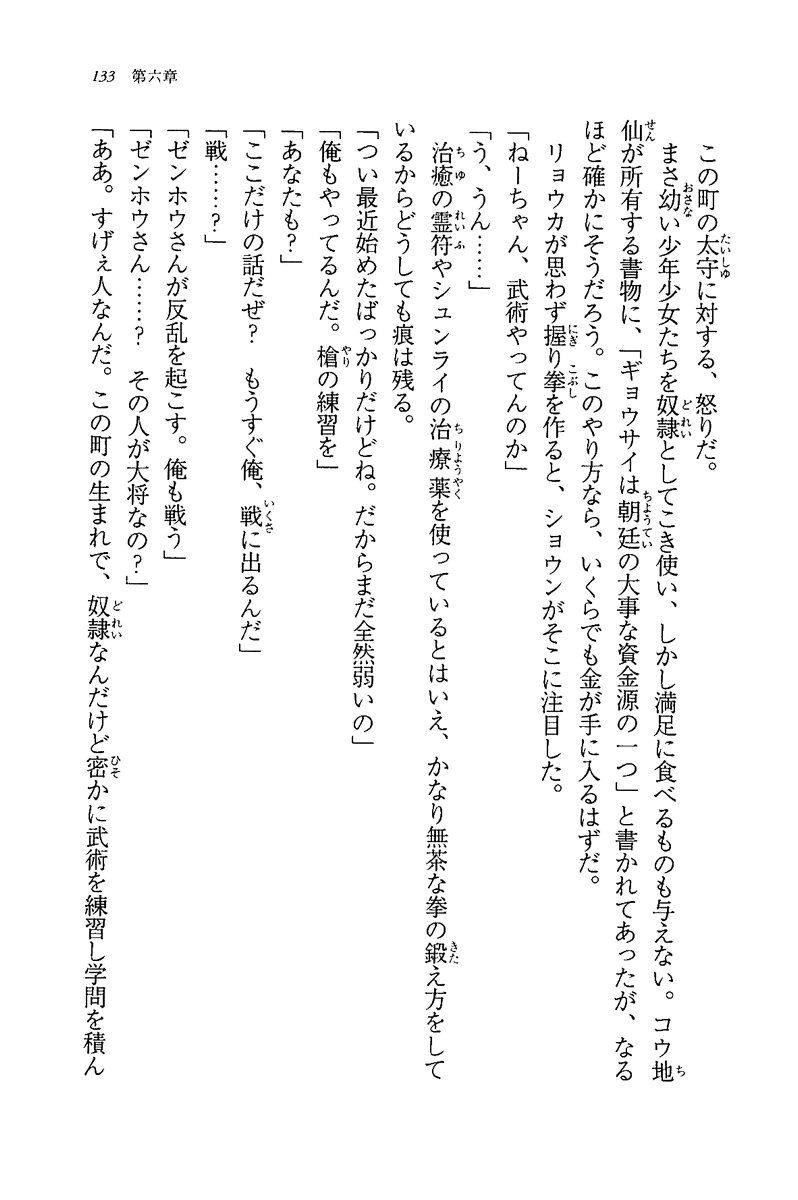 133 第六章
この町の太守に対する、怒りだ。
まさ幼い少年少女たちを奴隷としてこき使い、しかし満足に食べるものも与えない。コウ地
仙が所有する書物に、「ギョウサイは朝廷の大事な資金源の一つ」と書かれてあったが、なる
ほど確かにそうだろう。このやり方なら、いくらでも金が手に入るはずだ。
リョウカが思わず握り拳を作ると、ショウンがそこに注目した。
「ねーちゃん、武術やってんのか」
「う、うん……」
治癒の霊符やシュンライの治療薬を使っているとはいえ、かなり無茶な拳の鍛え方をして
いるからどうしても痕は残る。
「つい最近始めたばっかりだけどね。だからまだ全然弱いの」
「俺もやってるんだ。槍の練習を」
「あなたも?」
「ここだけの話だぜ? もうすぐ俺、戦に出るんだ」
「戦……?」
「ゼンホウさんが反乱を起こす。俺も戦う」
「ゼンホウさん……? その人が大将なの?」
「ああ。すげぇ人なんだ。この町の生まれで、奴隷なんだけど密かに武術を練習し学問を積ん